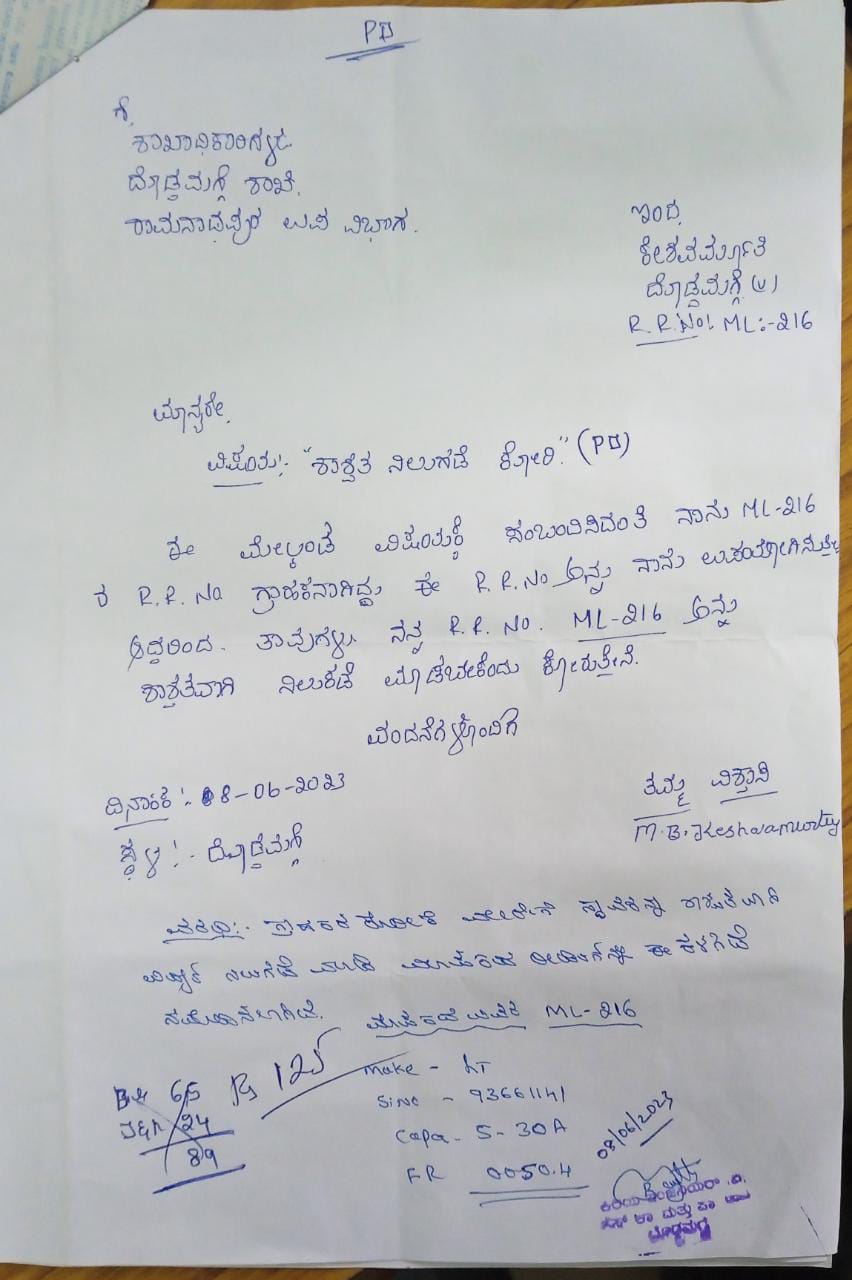 PD
ಗೆ,
ಶಾಖಾಧಿಕಾರಿಗಳು
ದೊಡ್ಡಮಗ್ಗೆ ಶಾಖೆ.
ರಾಮನಾಥಪುರ ಉಪ ವಿಭಾಗ.
ಇಂದ,
ಕೇಶವಮೂರ್ತಿ
ದೊಡ್ಡಮಗ್ಗೆ (ಗ್ರಾ)
R.R.No: ML:-216
ಮಾನ್ಯರೇ,
ವಿಷಯ:- "ಶಾಶ್ವತ ನಿಲುಗಡೆ ಕೋರಿ." (PD)
ಈ ಮೇಲ್ಕಂಡ ವಿಷಯಕ್ಕೆ ಸಂಬಂದಿಸಿದಂತೆ ನಾನು ML-216
ರ R.R. No ಗ್ರಾಹಕನಾಗಿದ್ದು ಈ R.R.No ಅನ್ನು ನಾನು
ಇದ್ದರಿಂದ. ತಾವುಗಳು ನನ್ನ R.R. No. ML-216 ಅನ್ನು
ಶಾಶ್ವತವಾಗಿ ನಿಲುಕಡೆ ಮಾಡಬೇಕೆಂದು ಕೋರುತ್ತೇನೆ.
ವಂದನೆಗಳೊಂದಿಗೆ
ದಿನಾಂಕ :- 08-06-2023
ಸ್ಥಳ :- ದೊಡ್ಡಮಗ್ಗೆ
ತಮ್ಮ ವಿಶ್ವಾಸಿ
M.B. Keshavamurthy
ವರದಿ:- ಗ್ರಾಹಕರ ಕೋರಿಕೆ ಮೇರೆಗೆ
ವಿದ್ಯುತ್ ನಿಲುಗಡೆ ಮಾಡಿ ಮಾಪಕದ ರೀಡಿಂಗ್ ನ್ನು ಈ ಕೆಳಗಿನಂತೆ
ನಮೂದಿಸಲಾಗಿದೆ. ಮಾಪಕದ ವಿವರ ML-216
Make - LT
Sl no - 93661141
Capa - 5-30A
FR 0050.4
65 Rs 125
24
89
08/06/2023
ದೊಡ್ಡಮಗ್ಗೆ